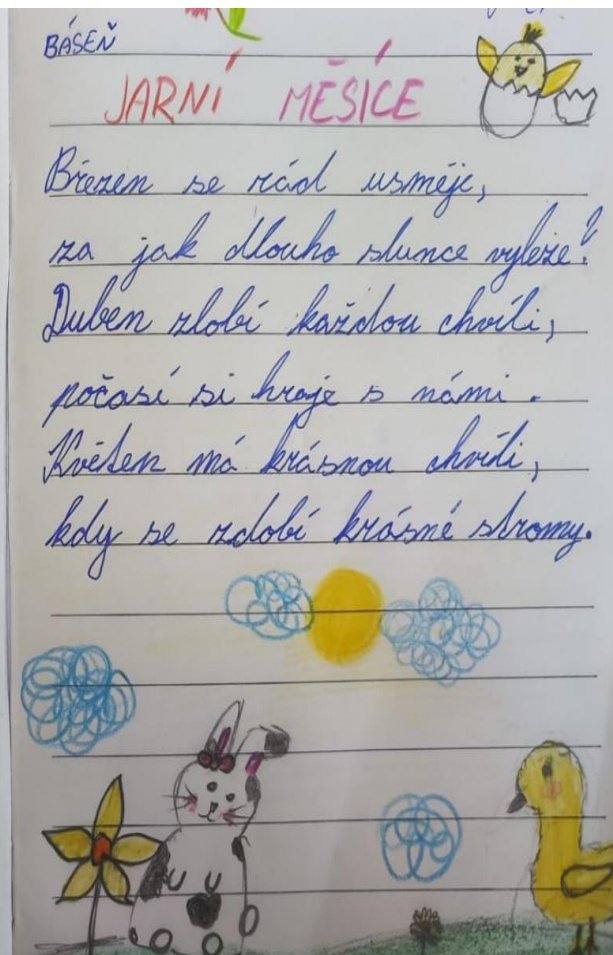 BÁSEŇ
JARNÍ MĚSÍCE
Březen se rád usměje,
za jak dlouho slunce vyleze?
Duben zlobí každou chvíli,
počasí si hraje s námi.
Květen má krásnou chvíli,
kdy se zdobí krásné stromy.